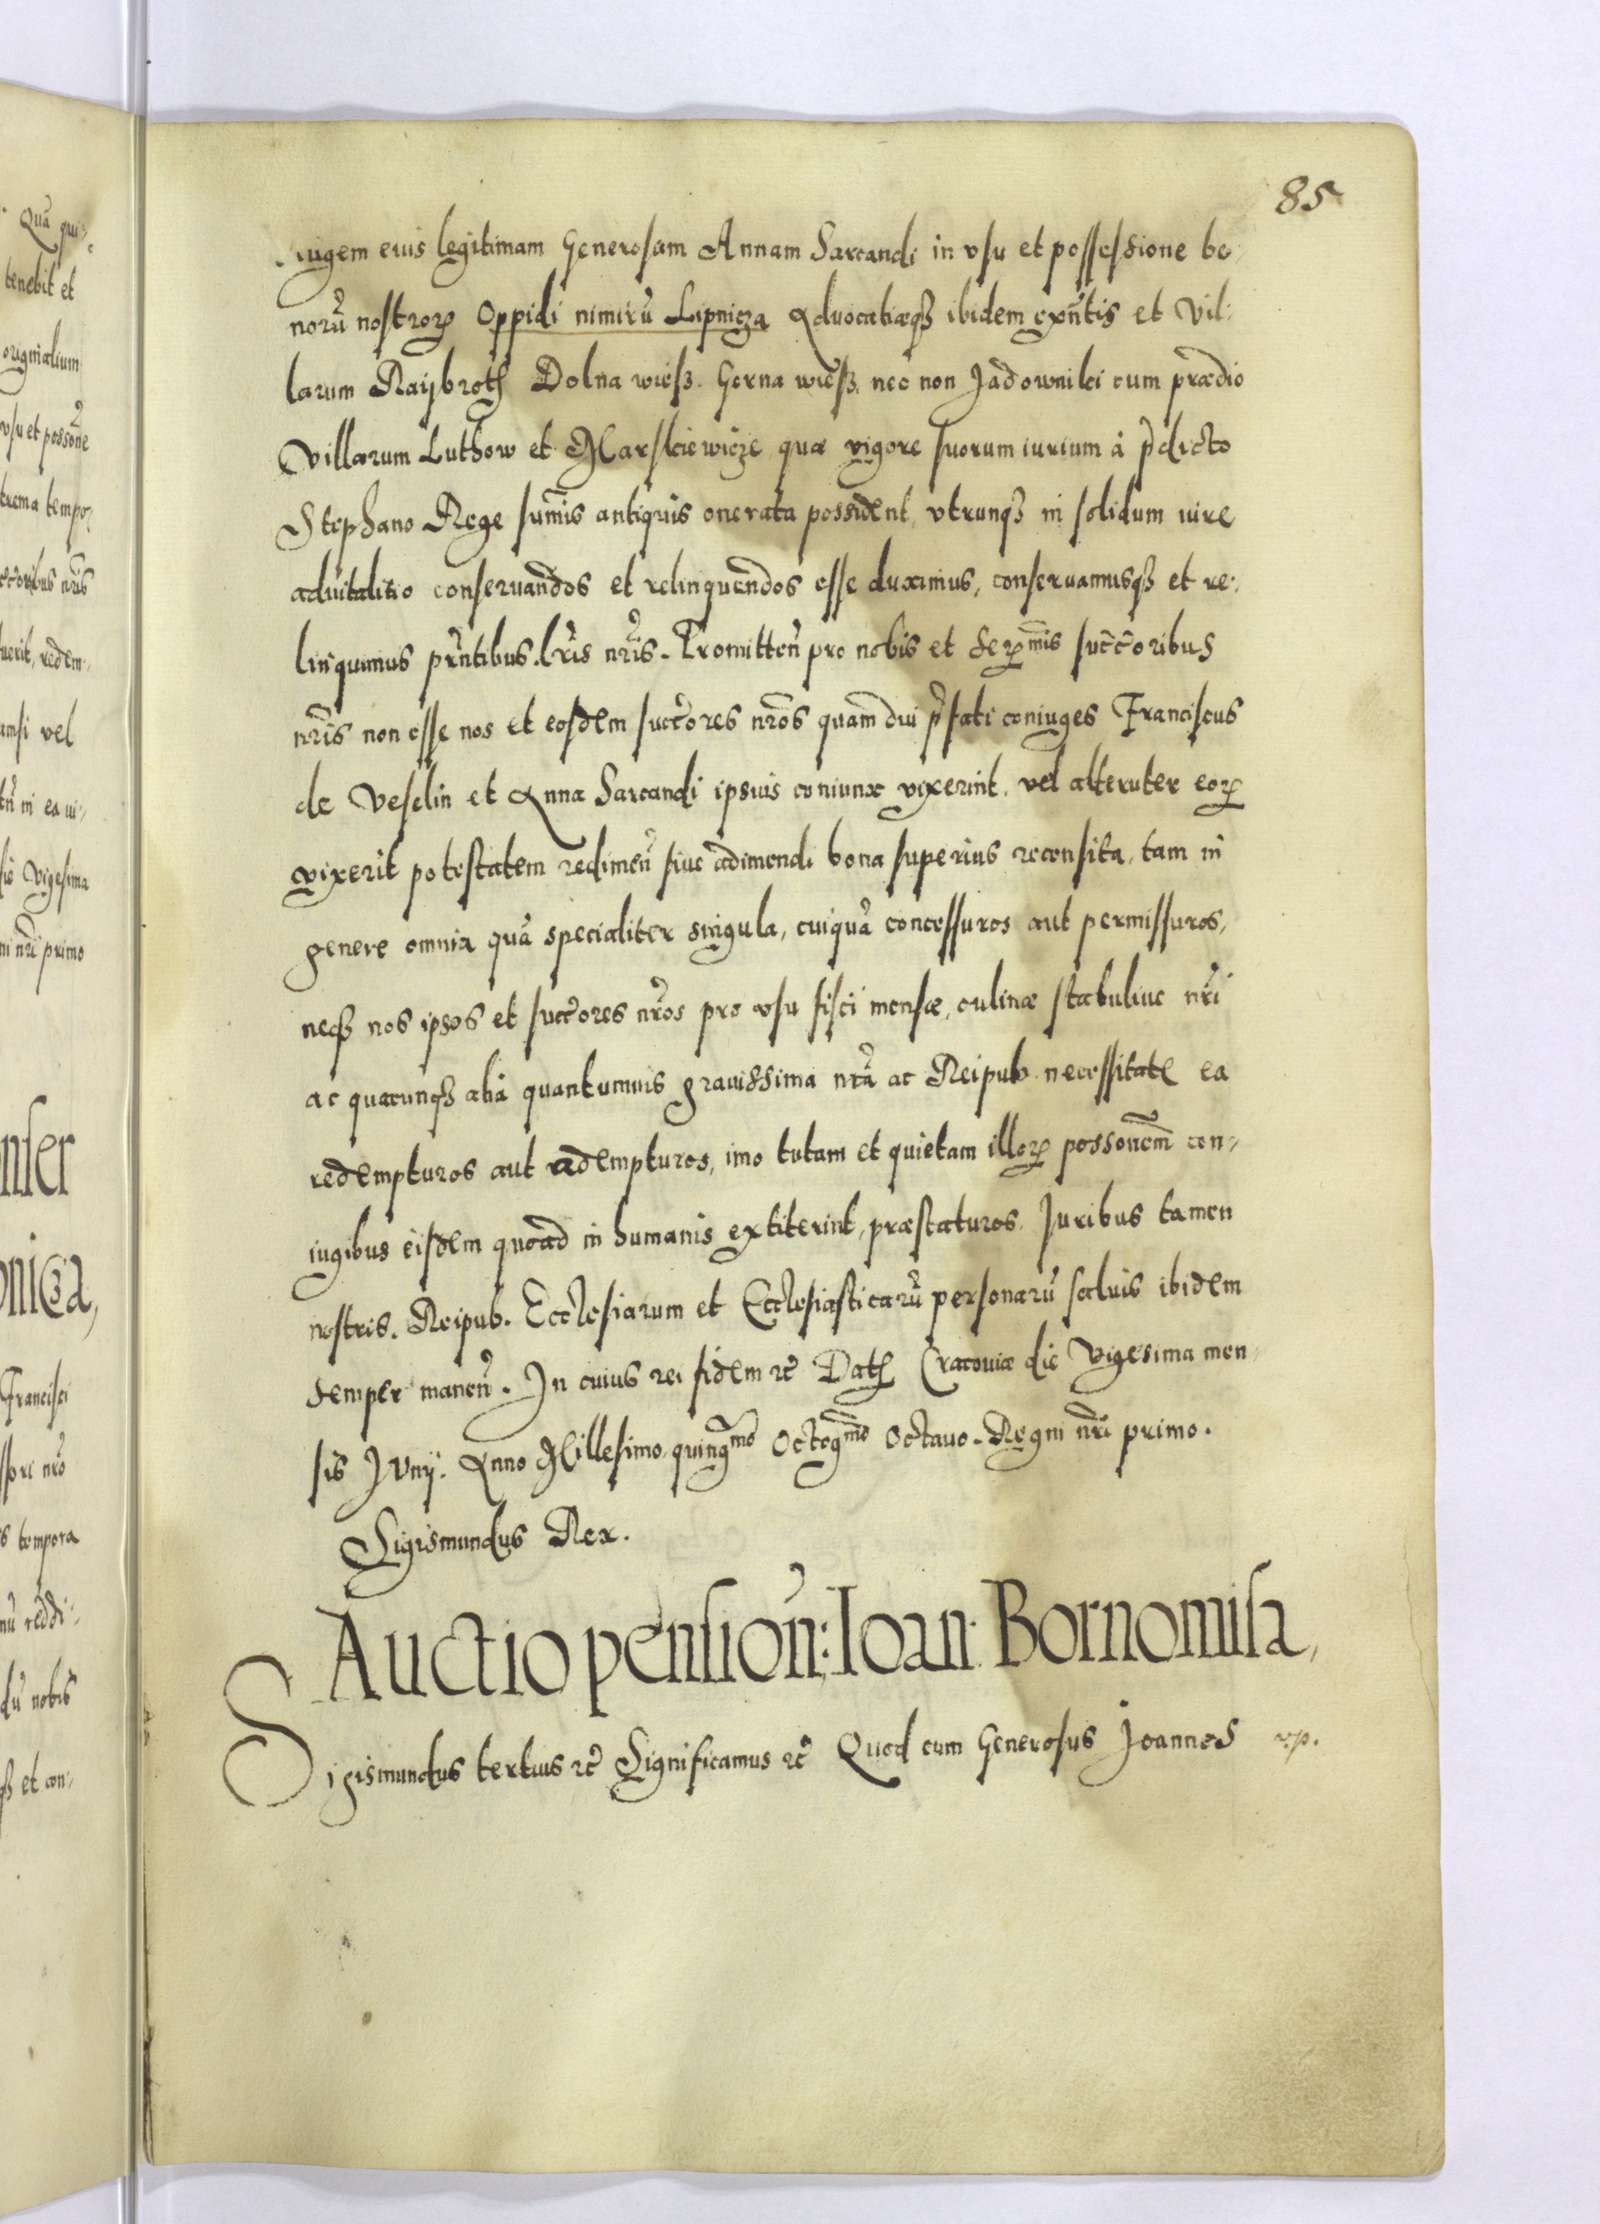 85
iugem eius legitimam Generosam Annam Sarcandi in vsu et possessione bo-
norũ nostrorꝝ Oppidi nimirũ Lipnicza Aduocatiæqꝫ ibidem exñtis et Vil-
larum Raijbroth Dolna wiesß. Gorna wiesß. nec non Jadownikі cum prædio
Villarum Luthow et Marskiewicze quæ vigore suorum iurium á p̃dicto
Stephano Rege sum̃is antiquis onerata possident, vtrunqꝫ in solidum iure
aduitalitio conseruandos et relinquendos esse duximus, conseruamusqꝫ et re-
linquimus pr̃ntibus. l̃ris nr̃is. Promitteñ pro nobis et Serꝫmis suc̃c̃oribus
nr̃is non esse nos et eosdem succ̃ores nr̃os quamdiu p̃fati coniuges Franciscus
de Veselin et Anna Sarcandi ipsius coniunx vixerint, vel alteruter eorꝝ
vixerit potestatem redimeñ siue adimendi bona superius recensita, tam in
genere omnia quã specialiter singula, cuiquã concessuros aut permissuros,
necqꝫ nos ipsos et succ̃ores nr̃os pro vsu fisci mensæ, culinæ stabuliue nr̃i
ac quacunqꝫ aliã quantumuis grauissima nr̃a ac Reipub. necessitate ea
redempturos aut adempturos, imo tutam et quietam illorꝝ possonem̃ con-
iugibus eisdem quoad in humanis extiterint, præstaturos. Juribus tamen
nostris. Reipub. Ecclesiarum et Ecclesiasticarũ personarũ saluis ibidem
semper maneñ. In cuius rei fidem ec̃ Dat Cracoviæ die Vigesima men-
sis Junij. Anno Millesimo quingmo Octogmo Octauo. Regni nr̃i primo.
Sigismundus Rex.
Auctio pensioñ: Ioan: Bornomisa,
Sigismundus tertius ec̃ Significamus ec̃ Quod cum Generosus Joannes